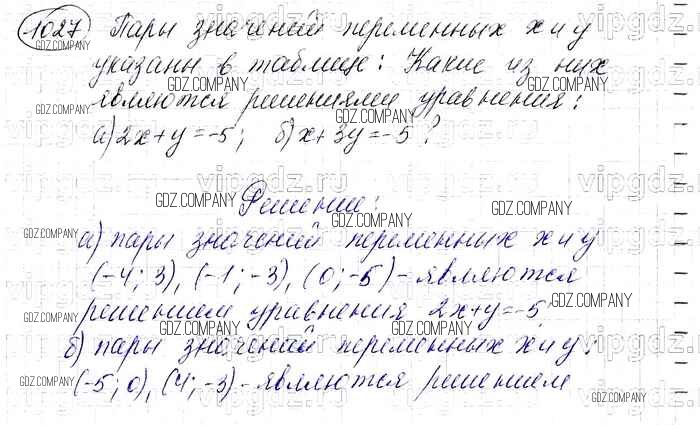 1027 Пары значений переменных x и y
указаны в таблице: Какие из них
являются решениями уравнения:
а) 2x+y=-5; б) x+3y=-5?
Решение:
а) пары значений переменных x и y
(-4; 3), (-1; -3), (0; -5) - являются
решением уравнения 2x+y=-5
б) пары значений переменных x и y:
(-5; 0), (4; -3) - являются решением